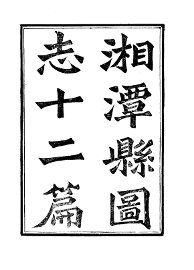 湘潭縣圖
志十二篇